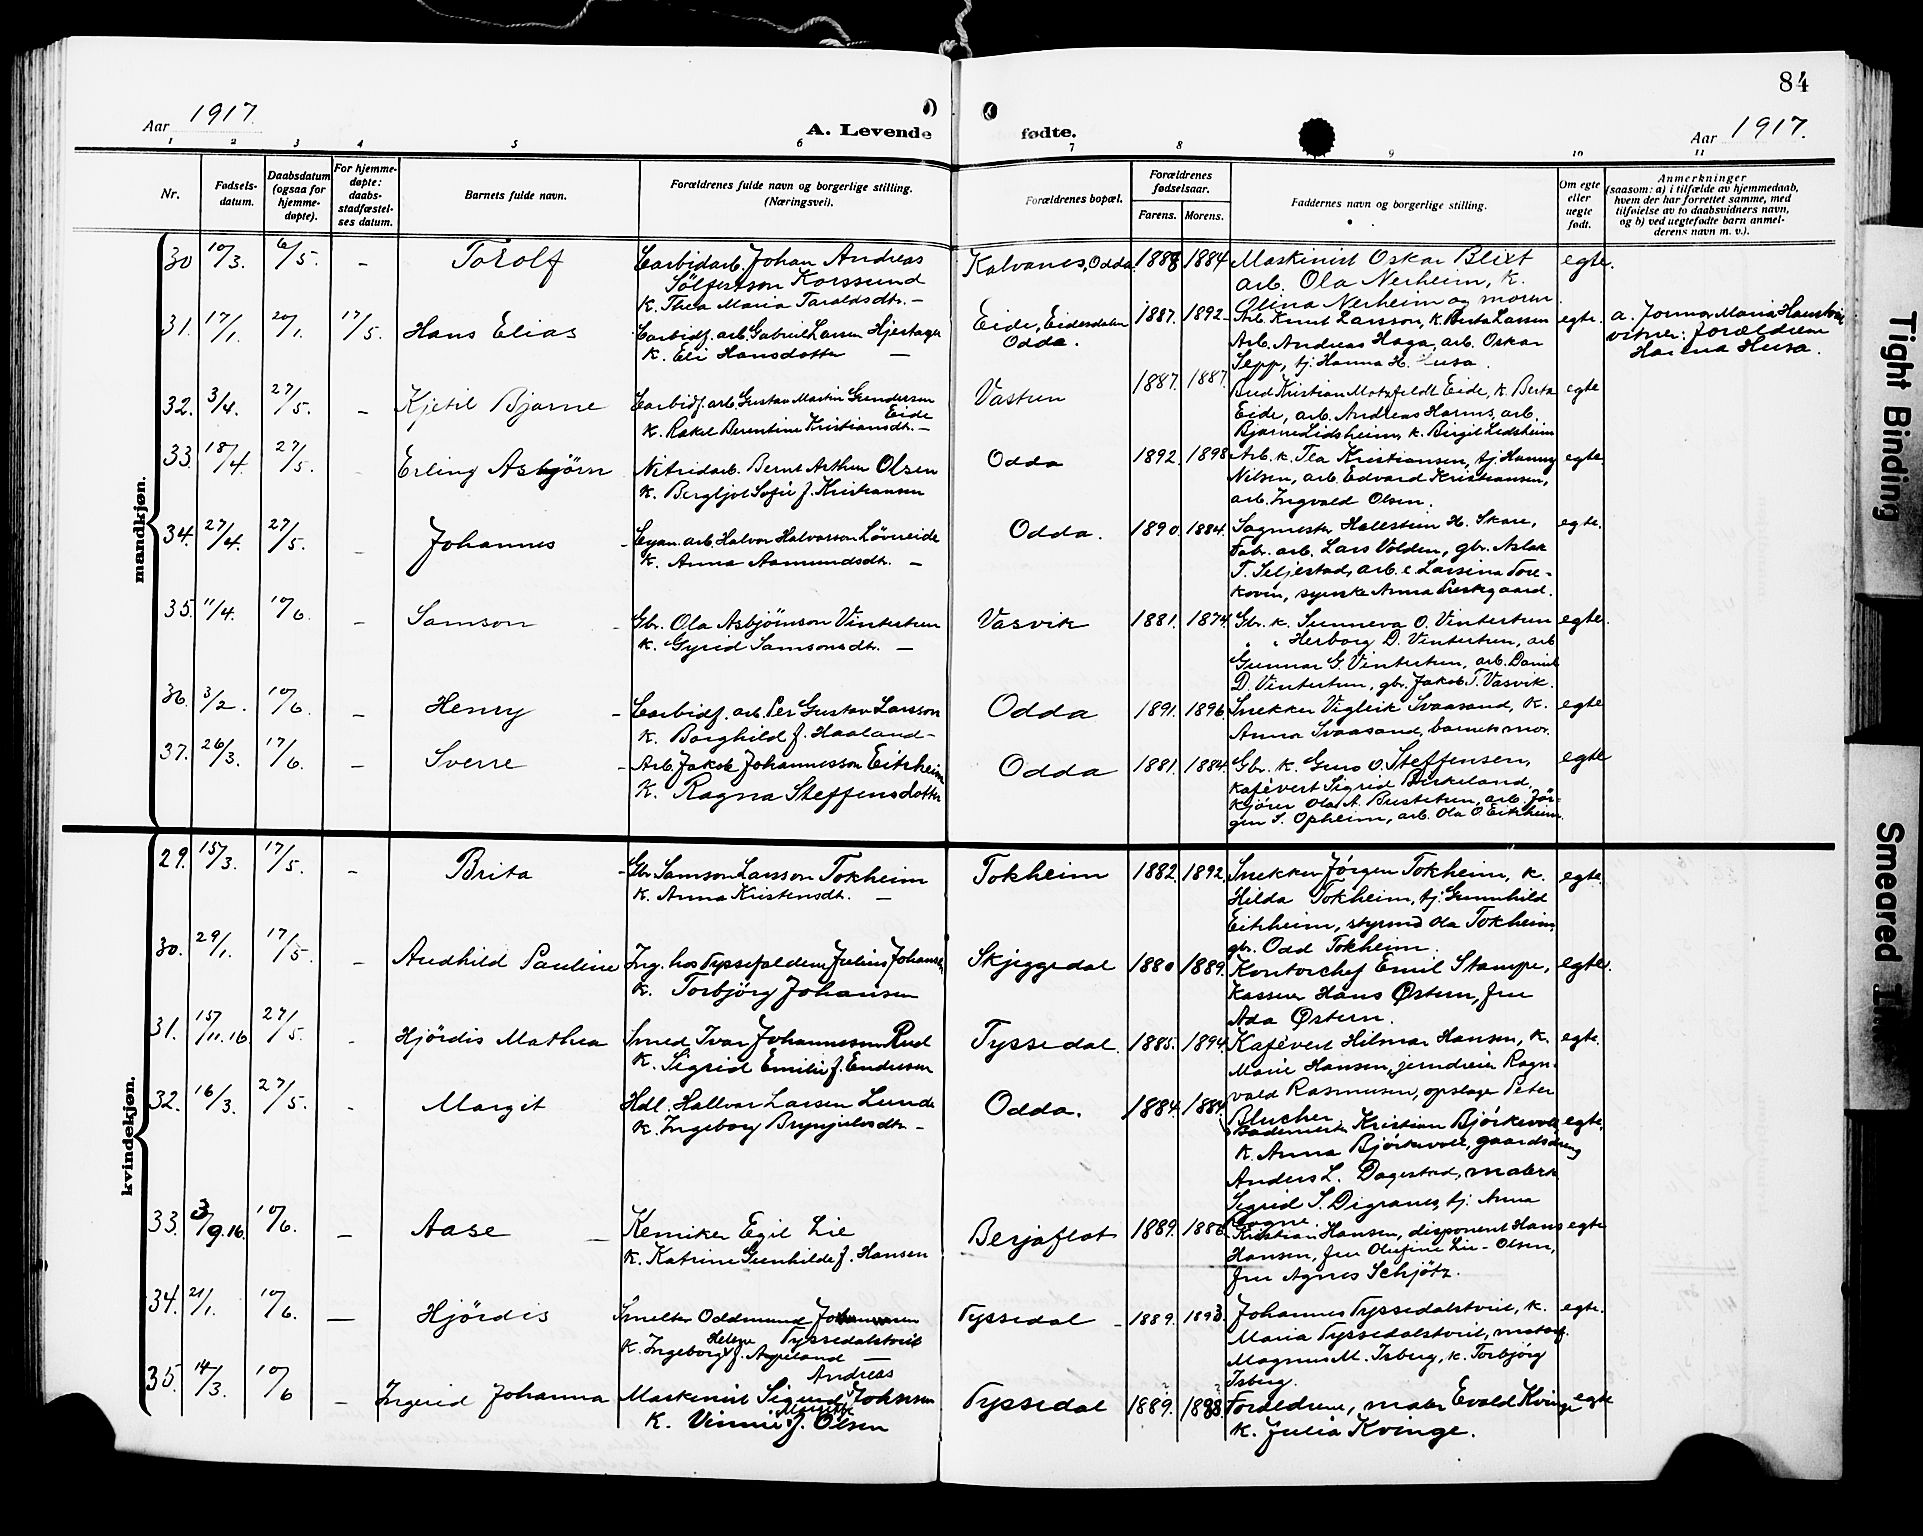 84
Aar 1917.
A. Levende fødte.
Aar 1917.
1 2 3 4 5 6 7 8 9 10 11
Nr.
Fødsels-
datum.
Daabsdatum
(ogsaa for
hjemme-
døpte).
For hjemme-
døpte:
daabs-
stadfæstel-
ses datum.
Barnets fulde navn.
Forældrenes fulde navn og borgerlige stilling.
(Næringsvei).
Forældrenes bopæl.
Forældrenes
fødselsaar.
Farens. Morens.
Faddernes navn og borgerlige stilling.
Om egte
eller
uegte
født.
Anmerkninger
(saasom: a) i tilfælde av hjemmedaab,
hvem der har forrettet samme, med
tilføielse av to daabsvidners navn,
og b) ved uegtefødte barn anmel-
derens navn m. v.).
mandkjøn.
30 10/3. 6/5. – Torolf Carbidarb. Johan Andreas Kalvanes, Odda. 1888 1884 Maskinist Oskar Blixt egte.
Sölfestson Korssund arb. Ola Nerheim, k.
k. Thea Maria Taraldsdtr. – Olina Nerheim og moren.
31. 17/1. 20/1. 17/5. Hans Elias Carbidf. arb. Gabriel Larsen Hjertager Eide, Eidesdalen 1887. 1892 Arb. Knut Larsson, k. Berta Larsen egte. a. Jormor Maria
k. Eli Hansdotter – Odda. Arb. Andreas Haga, arb. Oskar vitner: forældrene
Sepp, tj. Hanna H. Husa. Hanna Husa.
32. 3/4. 27/5. – Kjetil Bjarne Carbidf. arb. Gustav Martin Gundersen Vastun 1887. 1887. Bud Kristian Motzfeldt Eide, k. Berta egte
Eide Eide, arb. Andreas Harms, arb.
k. Rakel Berentine Kristiansdtr. – Bjarne Lidsheim, k. Birgit Lidsheim
33. 18/4. 27/5. Erling Asbjörn Nitridarb. Bernt Arthur Olsen Odda 1892. 1898 Arb. k. Tea Kristiansen, tj. Hanny egte.
k. Bergljot Sofie f. Kristiansen Nilsen, arb. Edvard Kristiansen,
arb. Ingvald Olsen.
34. 27/4. 27/5. – Johannes – Cyan. arb. Halvor Halvorson Lövreide Odda. 1890. 1884. Sagmester Hallstein H. Skare, egte.
k. Anna Aamundsdtr. – Fabr. arb. Lars Volden, gbr. Aslak
T. Seljestad, arb.
35. 11/4. 10/6. – Samson – Gbr. Ola Asbjörnson Vintertun Vasvik 1881. 1874. Gbr. k. Sunneva O. Vintertun egte.
k. Gyrid Samsonsdtr. – " " Herborg D. Vintertun, arb
Gunnar G. Vintertun, arb. Daniel
D. Vintertun, gbr. Jakob T. Vasvik.
36. 3/2. 10/6. – Henry – Carbidf. arb. Per Gustav Larsson Odda 1891. 1896. Snekker Vigleik Svaasand, k. egte
k. Borghild f. Haaland – Anna Svaasand, barnets mor.
37. 26/3. 17/6. – Sverre – Arb. Jakob Johannesson Eitrheim Odda 1881. 1884. Gbr. k. Guro O. Steffensen, egte
k. Ragna Steffensdotter kafévert Sigrid Birkeland,
kjörer Ola A. Bustetun, arb. Jör-
gen S. Opheim, arb. Ola O. Eitrheim.
kvindekjøn.
29. 15/3. 17/5. – Brita – Gbr. Samson Larsson Tokheim Tokheim 1882. 1892. Snekker Jörgen Tokheim, k. egte.
k. Anna Kristensdtr. – Hilda Tokheim, tj. Gunnhild
Eitrheim, styrmd Ola Tokheim
gbr. Odd Tokheim.
30. 29/1. 17/5. – Audhild Pauline Ing. hos Tyssefaldene Julius Johansen Skjeggedal 1880 1889. Kontorchef Emil Stampe, egte.
k. Torbjörg Johansen Kasserer Hans Østern, fru
Ada Østern.
31. 15/11.16 27/5. – Hjördis Mathea Smed Ivar Johannessen Rud Tyssedal. 1885. 1894. Kafévert Hilmar Hansen, k. egte.
k. Sigrid Emilie f. Endresen Marie Hansen, jerndreier Ragn-
vald Rasmusen, opslager Peter
Blucher.
32. 16/3. 27/5. – Margit Hdl. Hallvar Larsen Lunde Odda. 1884. 1884. Bademester Kristian Björkevoll egte.
k. Ingeborg Brynjulvsdtr. – k. Anna Björkevoll, gaardsdreng
Anders L. Dagestad,
Sigrid S. Digranes, tj. Anna
Rogne.
33. 3/9.16 10/6. – Aase – Kemiker Egil Lie Berjaflot 1889. 1886 Kristian Hansen, disponent Hans egte
k. Katrine Gunhilde f. Hansen Hansen, fru Olufine Lie-Olsen,
fru Agnes Schjötz.
34. 21/1. 10/6. – Hjördis Smelter Oddmund Johannesen Tyssedal – 1889. 1893. Johannes Tyssedalstveit, k. egte.
Helene Tyssedalstveit Maria Tyssedalstveit,
k. Ingeborg f. – Magnus M. Isberg, k. Torbjörg
Isberg.
35. 14/3. 10/6 – Ingrid Johanna Andreas
Maskinist Sigurd Johnsen Tyssedal 1889. 1888. Foreldrene, maler Evald Kvinge egte
k. Vinnie f. Olsen k. Julia Kvinge.
Tight Binding
Smeared